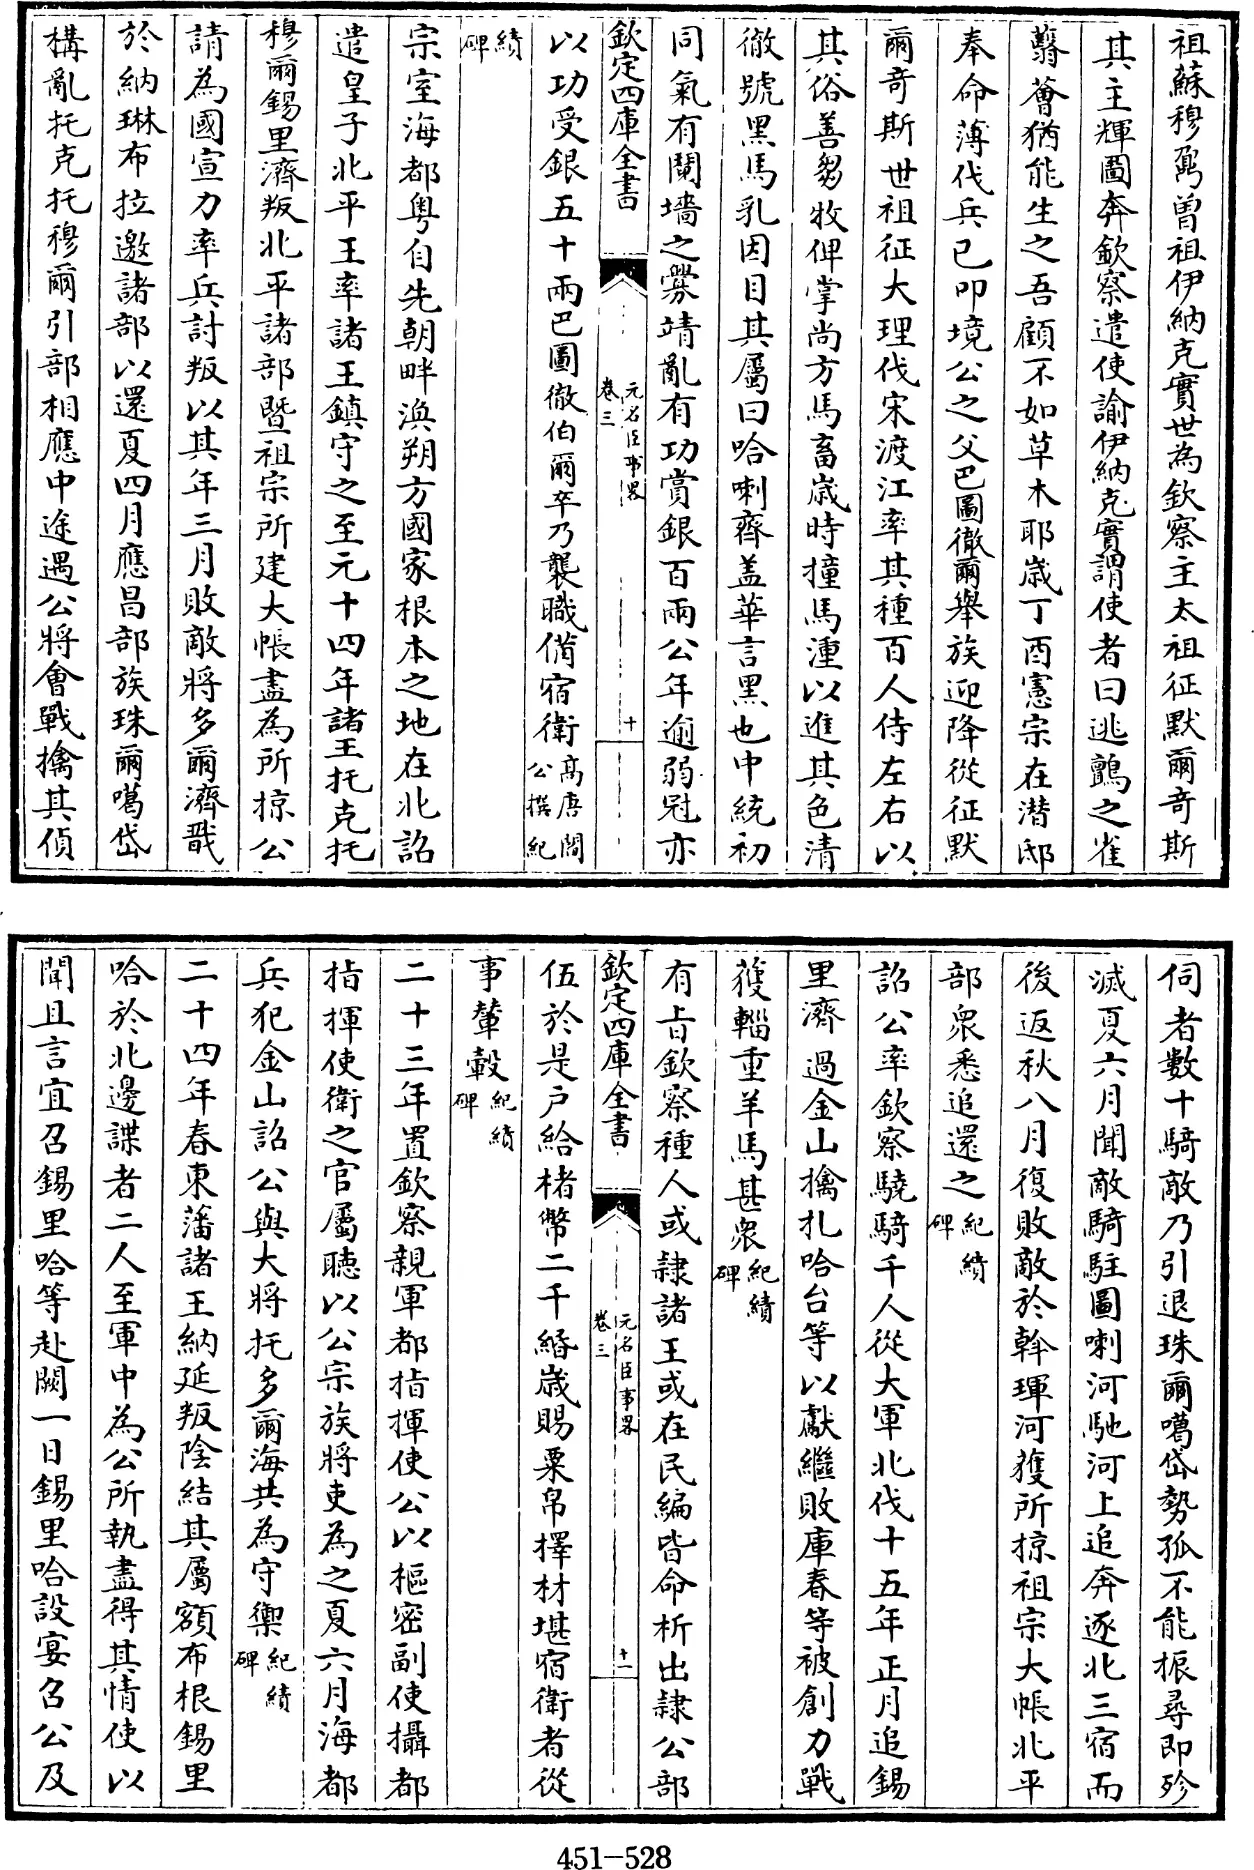 祖蘇穆爾曾祖伊納克實世為欽察主太祖征默爾竒斯
其主輝圖奔欽察遣使諭伊納克實謂使者曰逃鸇之雀
蘙薈猶能生之吾顧不如草木耶歲丁酉憲宗在潛邸
奉命薄伐兵已叩境公之父巴圖徹爾舉族迎降從征默
爾竒斯世祖征大理伐宋渡江率其種百人侍左右以
其俗善芻牧俾掌尚方馬畜歲時撞馬湩以進其色清
徹號黑馬乳因目其屬曰哈喇齊盖華言黑也中統初
同氣有䦧墻之釁靖亂有功賞銀百兩公年逾弱冠亦
欽定四庫全書 元名臣事畧 卷三 十
以功受銀五十兩巴圖徹伯爾卒乃襲職備宿衛高唐閻公撰紀
績碑
宗室海都粤自先朝畔渙朔方國家根本之地在北詔
遣皇子北平王率諸王鎮守之至元十四年諸王托克托
穆爾錫里濟叛北平諸部曁祖宗所建大帳盡為所掠公
請為國宣力率兵討叛以其年三月敗敵將多爾濟戩
於納琳布拉邀諸部以還夏四月應昌部族珠爾噶岱
構亂托克托穆爾引部相應中途遇公將會戰擒其偵
伺者數十騎敵乃引退珠爾噶岱勢孤不能振尋即殄
滅夏六月聞敵騎駐圖喇河馳河上追奔逐北三宿而
後返秋八月復敗敵於斡琿河獲所掠祖宗大帳北平
部衆悉追還之紀績碑
詔公率欽察驍騎千人從大軍北伐十五年正月追錫
里濟過金山擒扎哈台等以獻繼敗庫春等被創力戰
獲輜重羊馬甚衆紀績碑
有旨欽察種人或隷諸王或在民編皆命析出隷公部
欽定四庫全書 元名臣事畧 卷三 十一
伍於是戶給楮幣二千緡歲賜粟帛擇材堪宿衛者從
事輦轂紀績碑
二十三年置欽察親軍都指揮使公以樞密副使攝都
指揮使衛之官屬聽以公宗族將吏為之夏六月海都
兵犯金山詔公與大將托多爾海共為守禦紀績碑
二十四年春東藩諸王納延叛陰結其屬額布根錫里
哈於北邊諜者二人至軍中為公所執盡得其情使以
聞且言宜召錫里哈等赴闕一日錫里哈設宴召公及
451-528